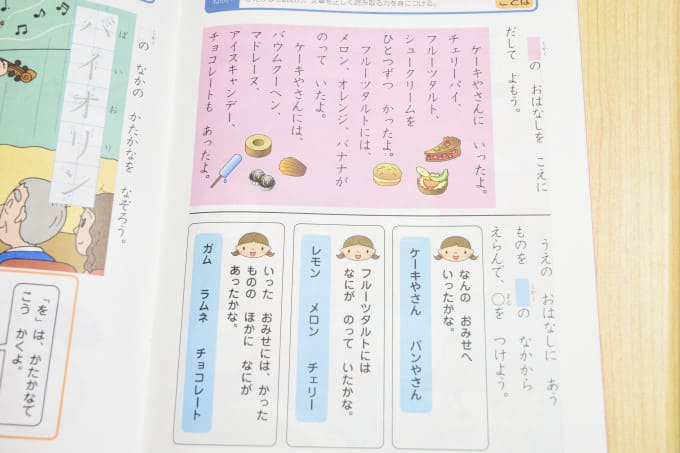 文章を正しく読み取る力を身につける。
ことば
しかくの おはなしを こえに
だして よもう。
ケーキやさんに いったよ。
チェリーパイ、
フルーツタルト、
シュークリームを
ひとつずつ かったよ。
フルーツタルトには、
メロン、オレンジ、バナナが
のって いたよ。
ケーキやさんには、
バウムクーヘン、
マドレーヌ、
アイスキャンデー、
チョコレートも あったよ。
うえの おはなしに あう
ものを しかくの なかから
えらんで、○を つけよう。
まる
なんの おみせへ
いったかな。
ケーキやさん パンやさん
フルーツタルトには
なにが のって いたかな。
レモン メロン チェリー
いった おみせには、かった
ものの ほかに なにが
あったかな。
ガム ラムネ チョコレート
の なかの かたかなを なぞろう。
バイオリン
ばいおりん
「を」は、かたかなで
こう かくよ。